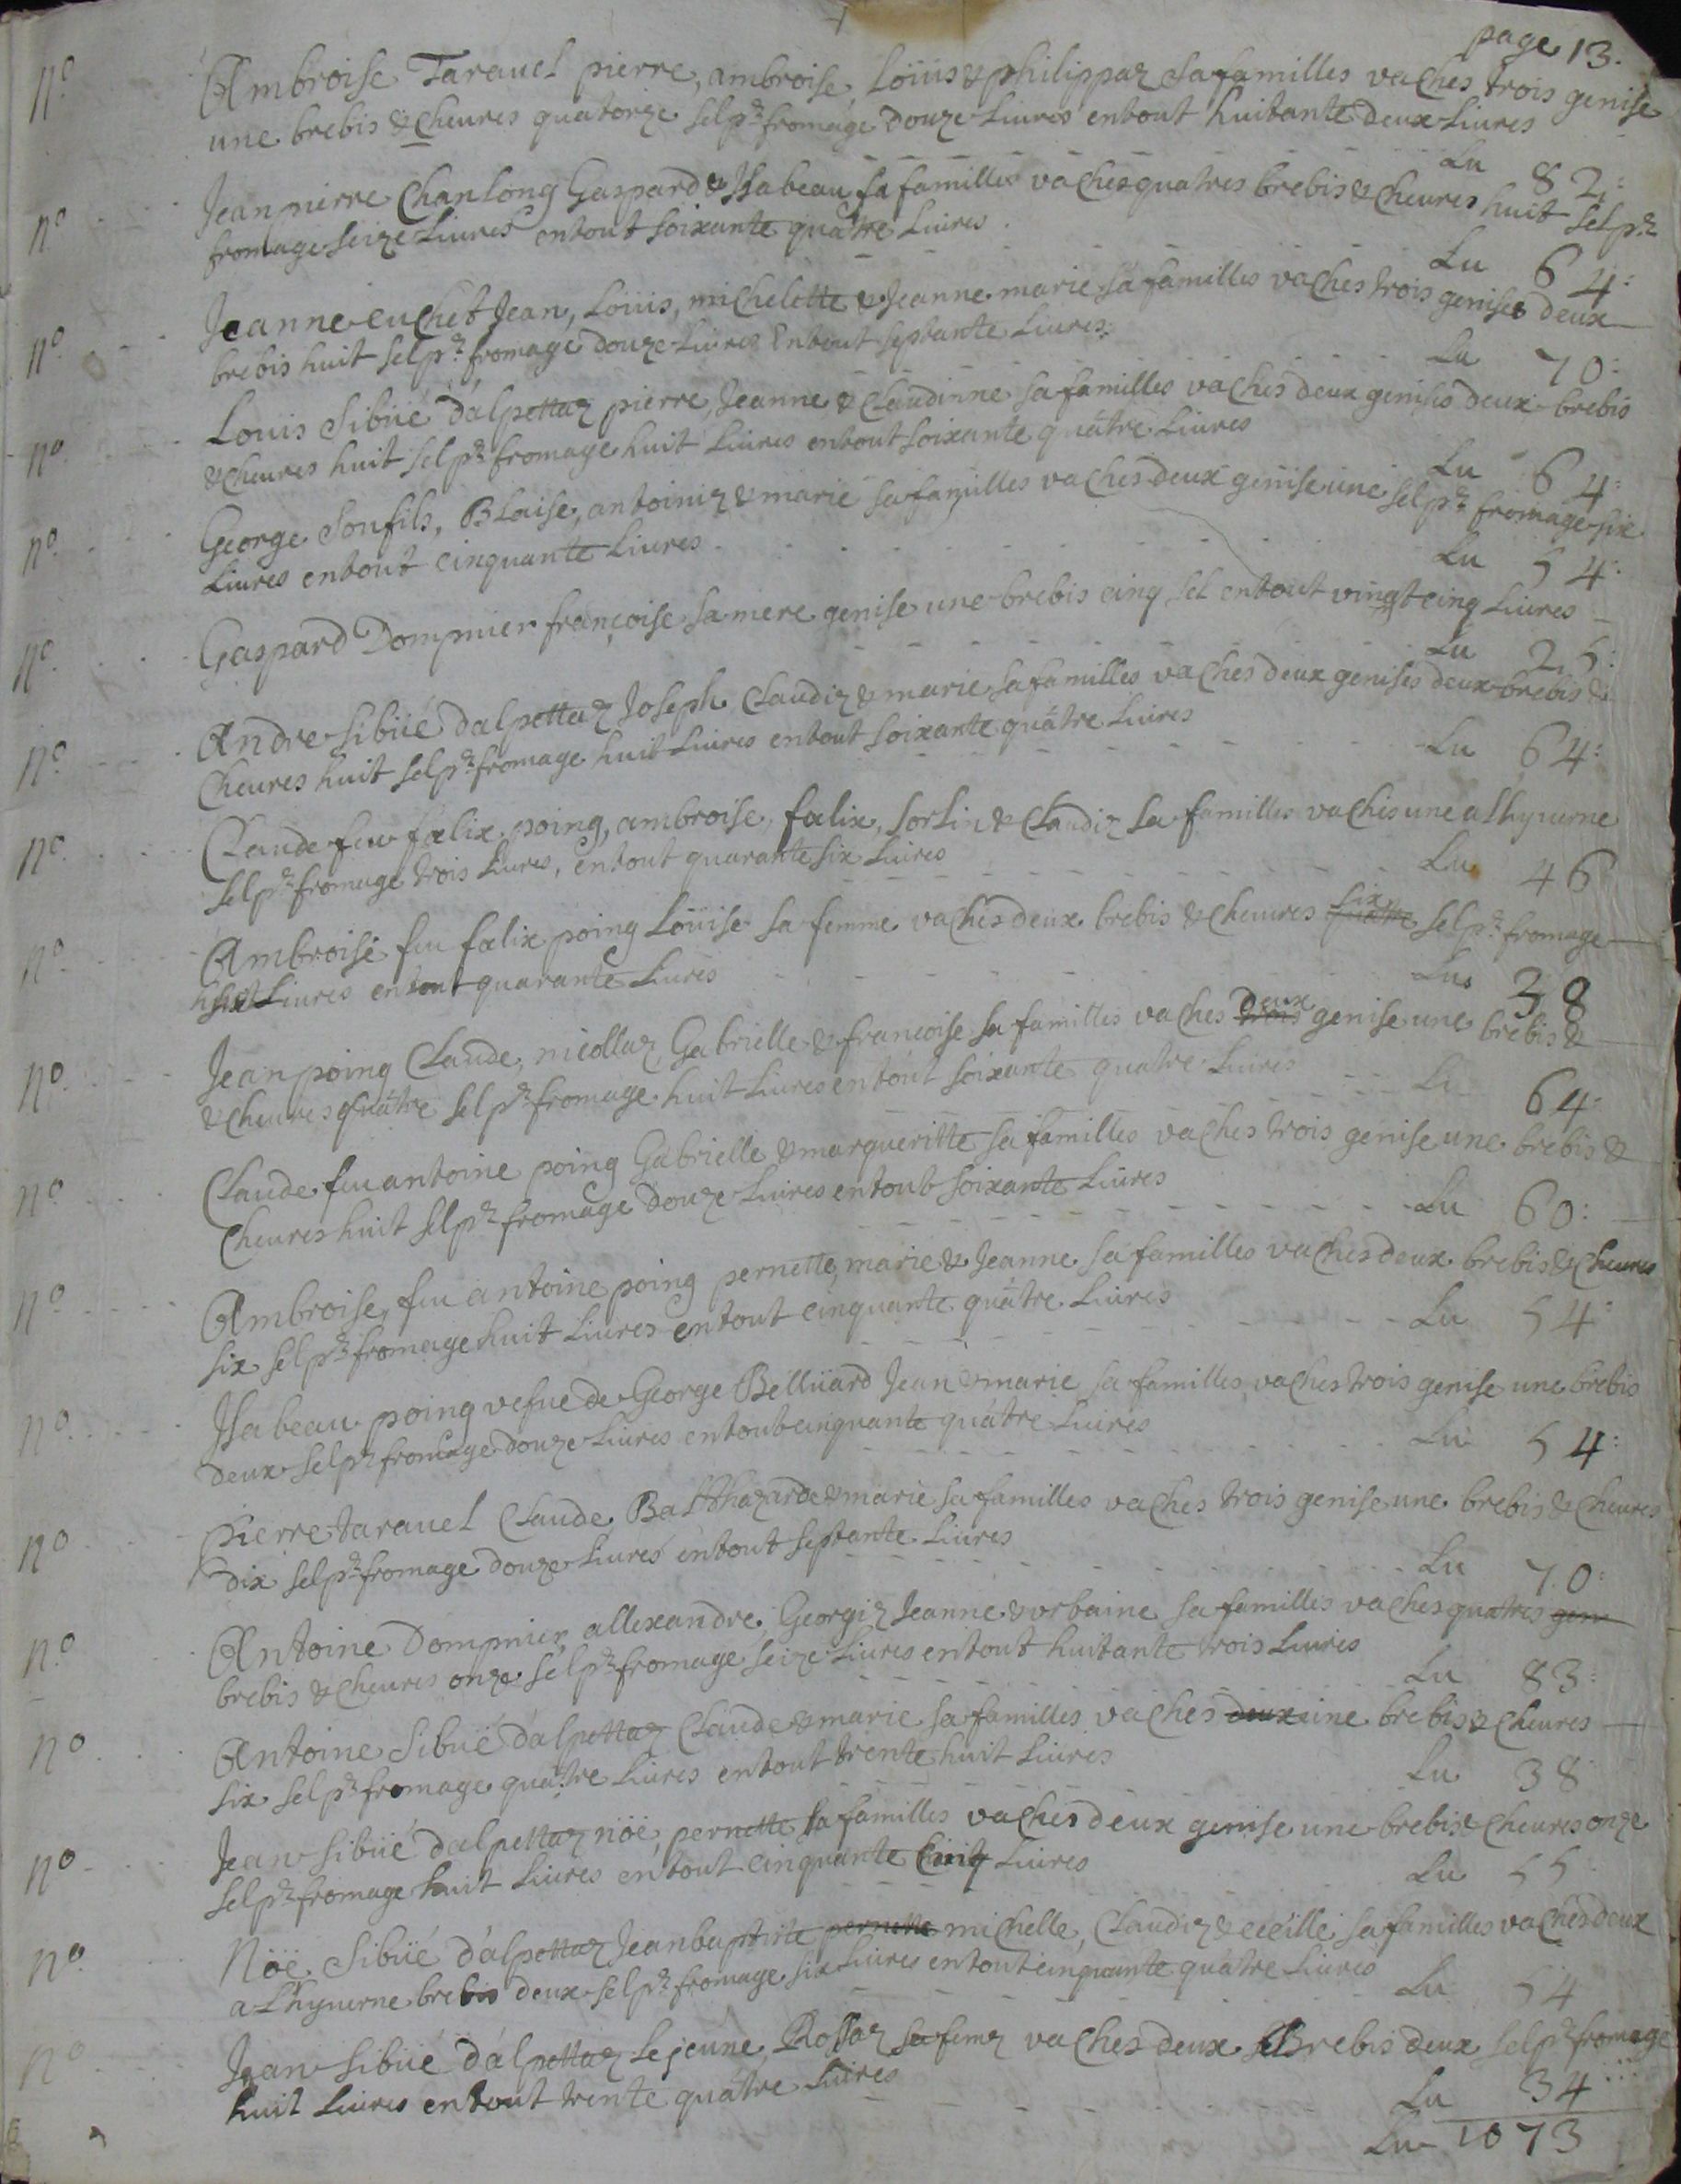 page 13.
n.o Ambroise Tarauel pierre, ambroise, Loüis & philippaz sa familles vaches trois genise
une brebis & cheures quatorze sel p.r fromage douze Liures entout huitante deux Liures
Lu 82:
n.o Jean pierre Chanlong Gaspard & Jsabeau sa familles vaches quatres brebis & cheures huit sel p.r
fromage seize Liures entout soixante quatre Liures.
Lu 64:
n.o Jeanne cuchet Jean, Loüis, michelette & Jeanne marie sa familles vaches trois genises deux
brebis huit sel p.r fromage douze Liures Entout septante Liures:
Lu 70:
n.o Louis Sibüé dalpettaz pierre, Jeanne & Claudinne sa familles vaches deux genises deux brebis
& cheures huit sel p.r fromage huit Liures entout soixante quâtre Liures
Lu 64:
n.o George Son fils, BLaise, antoiniz & marie sa familles vaches deux genise une sel p.r fromage six
Liures entout cinquante Liures
Lu 54:
n.o Gaspard Dompnier françoise sa mere genise une brebis cinq sel entout vingt cinq Liures
Lu 25:
n.o Andre sibüé dalpettaz Joseph Claudiz & marie sa familles vaches deux genises deux brebis &
Cheures huit sel p.r fromage huit Liures entout soixante quâtre Liures
Lu 64:
n.o Claude feu fælix poing, ambroise, fælix, sorlin & Claudiz sa familles vaches une a Lhyuerne
sel p.r fromage trois Liures, entout quarante six Liures
Lu 46
n.o Ambroise feu fælix poing Loüise sa femme vaches deux brebis & cheures quattre six sel p.r fromage
huit Liures entout quarante Liures
Lu 38
n.o Jean poing Claude, nicollaz Gabrielle & francoise sa familles vaches trois deux genise une brebis &
& cheures quâtre sel p.r fromage huit Liures entout soixante quatre Liures
Lu 64:
n.o Claude feu antoine poing Gabrielle & margueritte sa familles vaches trois genise une brebis &
Cheures huit sel p.r fromage douze Liures entout soixante Liures
Lu 60:
n.o Ambroise, feu antoine poing pernette, marie & Jeanne sa familles vaches deux brebis & cheures
six sel p.r fromage huit Liures entout cinquante quâtre Liures
Lu 54:
n.o Jsabeau poing vefue de George Bellüard Jean & marie sa familles vaches trois genise une brebis
deux sel p.r fromage douze Liures entout cinquante quâtre Liures
Lu 54:
n.o pierre tarauel Claude Balthazarde & marie sa familles vaches trois genise une brebis & cheures
dix sel p.r fromage douze Liures entout septante Liures
Lu 70:
n.o Antoine Dompnier allexandre, Georgiz Jeanne & vrbaine sa familles vaches quatres gem
brebis & cheures onze sel p.r fromage seize Liures entout huitante trois Liures
Lu 83:
n.o Antoine Sibüé dalpettaz Claude & marie sa familles vaches deux une brebis & cheures
six sel p.r fromage quatre Liures entout trente huit Liures
Lu 38
n.o Jean sibüé dalpettaz nöé, pernette sa familles vaches deux genise une brebis & cheures onze
sel p.r fromage huit Liures entout cinquante Cinq Liures
Lu 55
n.o Nöé Sibüé dalpettaz Jean baptiste pernette michelle, Claudiz & ceçille sa familles vaches deux
a Lhyuerne brebis deux sel p.r fromage six Liures entout cinquante quâtre Liures
Lu 54
n.o Jean sibüé dalpettaz Le jeune Rossaz sa femz vaches deux Brebis deux sel p.r fromage
huit Liures entout trente quâtre Liures
Lu 34
Lu 1073